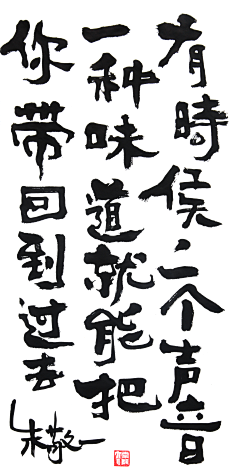 有時侯、一个声音
一种味道就能把
你带回到过去
朱敬一